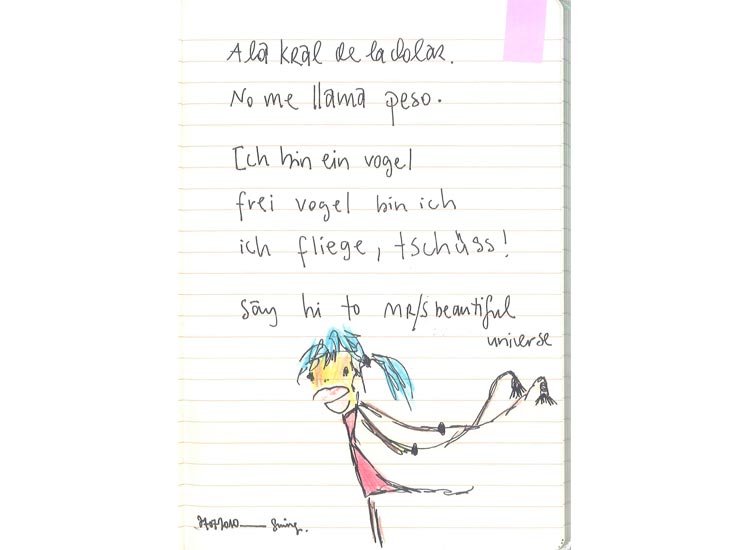 A la kral de la dolar.
No me llama peso.
Ich bin ein vogel
frei vogel bin ich
ich fliege, tschüss!
Say hi to MR/S beautiful
universe